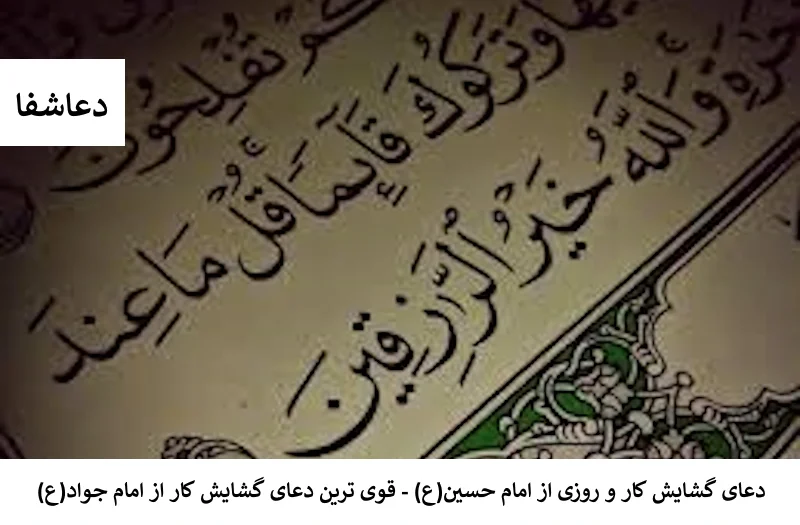 دعاشفا
تُفْلِحُونَ
وَتَرَكُوكَ قَآئِمًا قُلْ مَا عِندَ
وَٱللَّهُ خَيْرُ ٱلرَّٰزِقِينَ
دعای گشایش کار و روزی از امام حسین(ع) - قوی ترین دعای گشایش کار از امام جواد(ع)